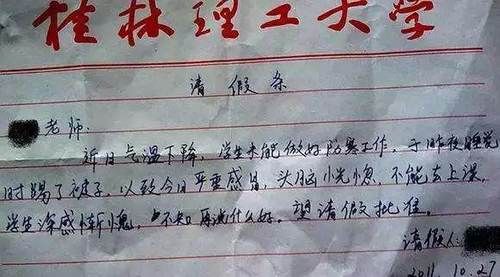 桂林理工大学
请假条
老师:
近日气温下降，学生未能做好防寒工作，于昨夜睡觉
时踢了被子，以致今日严重感冒，头脑恍惚，不能去上课，
学生深感惭愧，不知再说什么好。望请假批准。
请假人:
2011.10.27